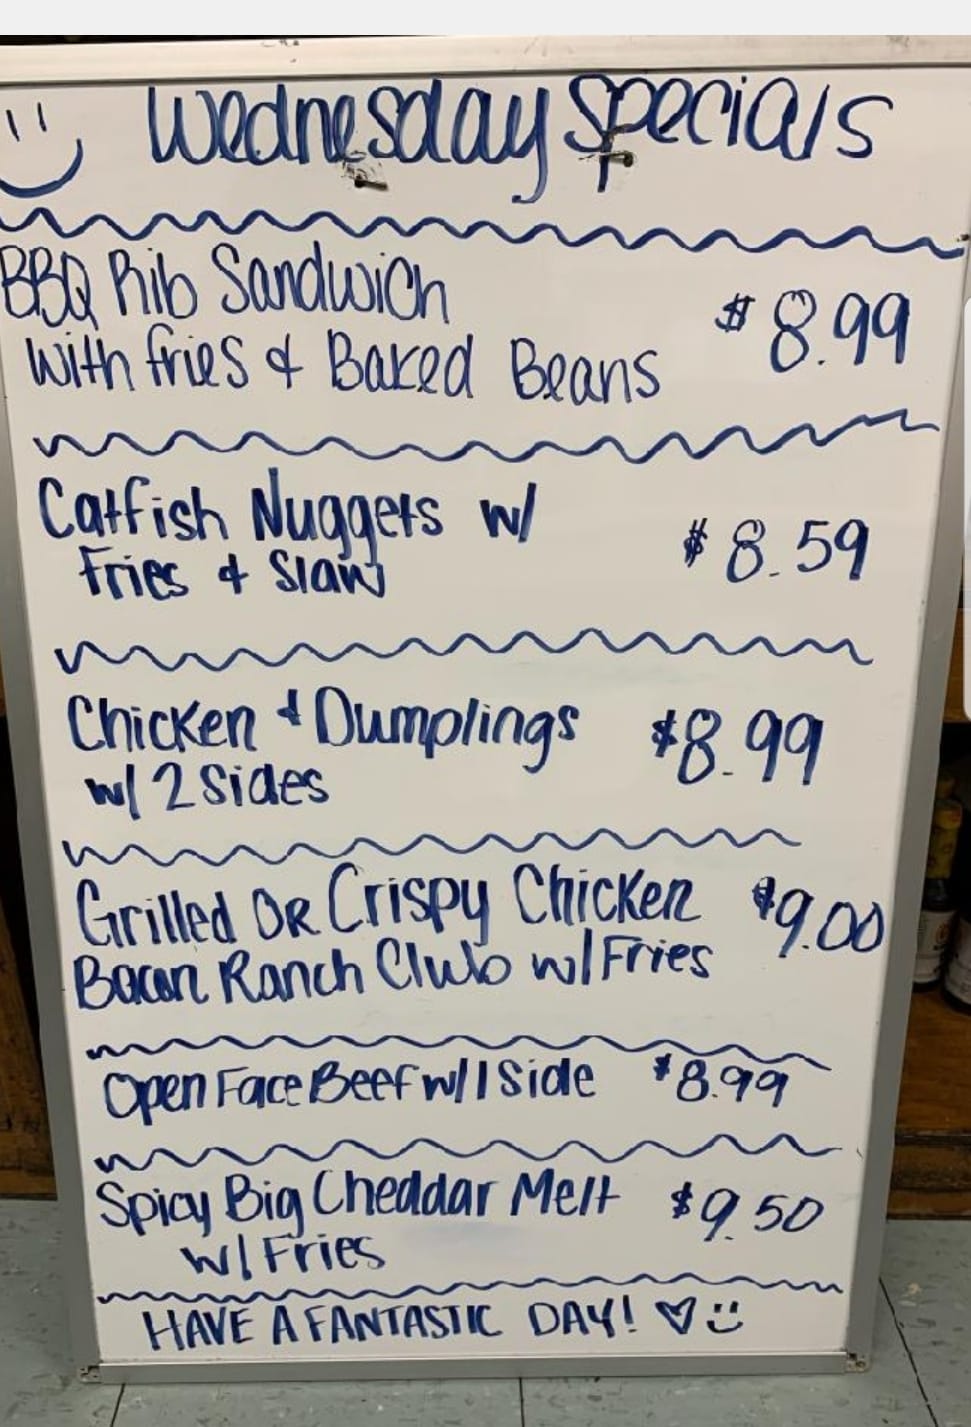 Wednesday Specials
BBQ Rib Sandwich
$8.99
with fries & Baked Beans
Catfish Nuggets w/
$8.59
Fries & Slaw
Chicken & Dumplings
$8.99
w/ 2 Sides
Grilled OR Crispy Chicken
$9.00
Bacon Ranch Club w/ Fries
Open Face Beef w/ 1 Side $8.99
Spicy Big Cheddar Melt
$9.50
w/ Fries
HAVE A FANTASTIC DAY!